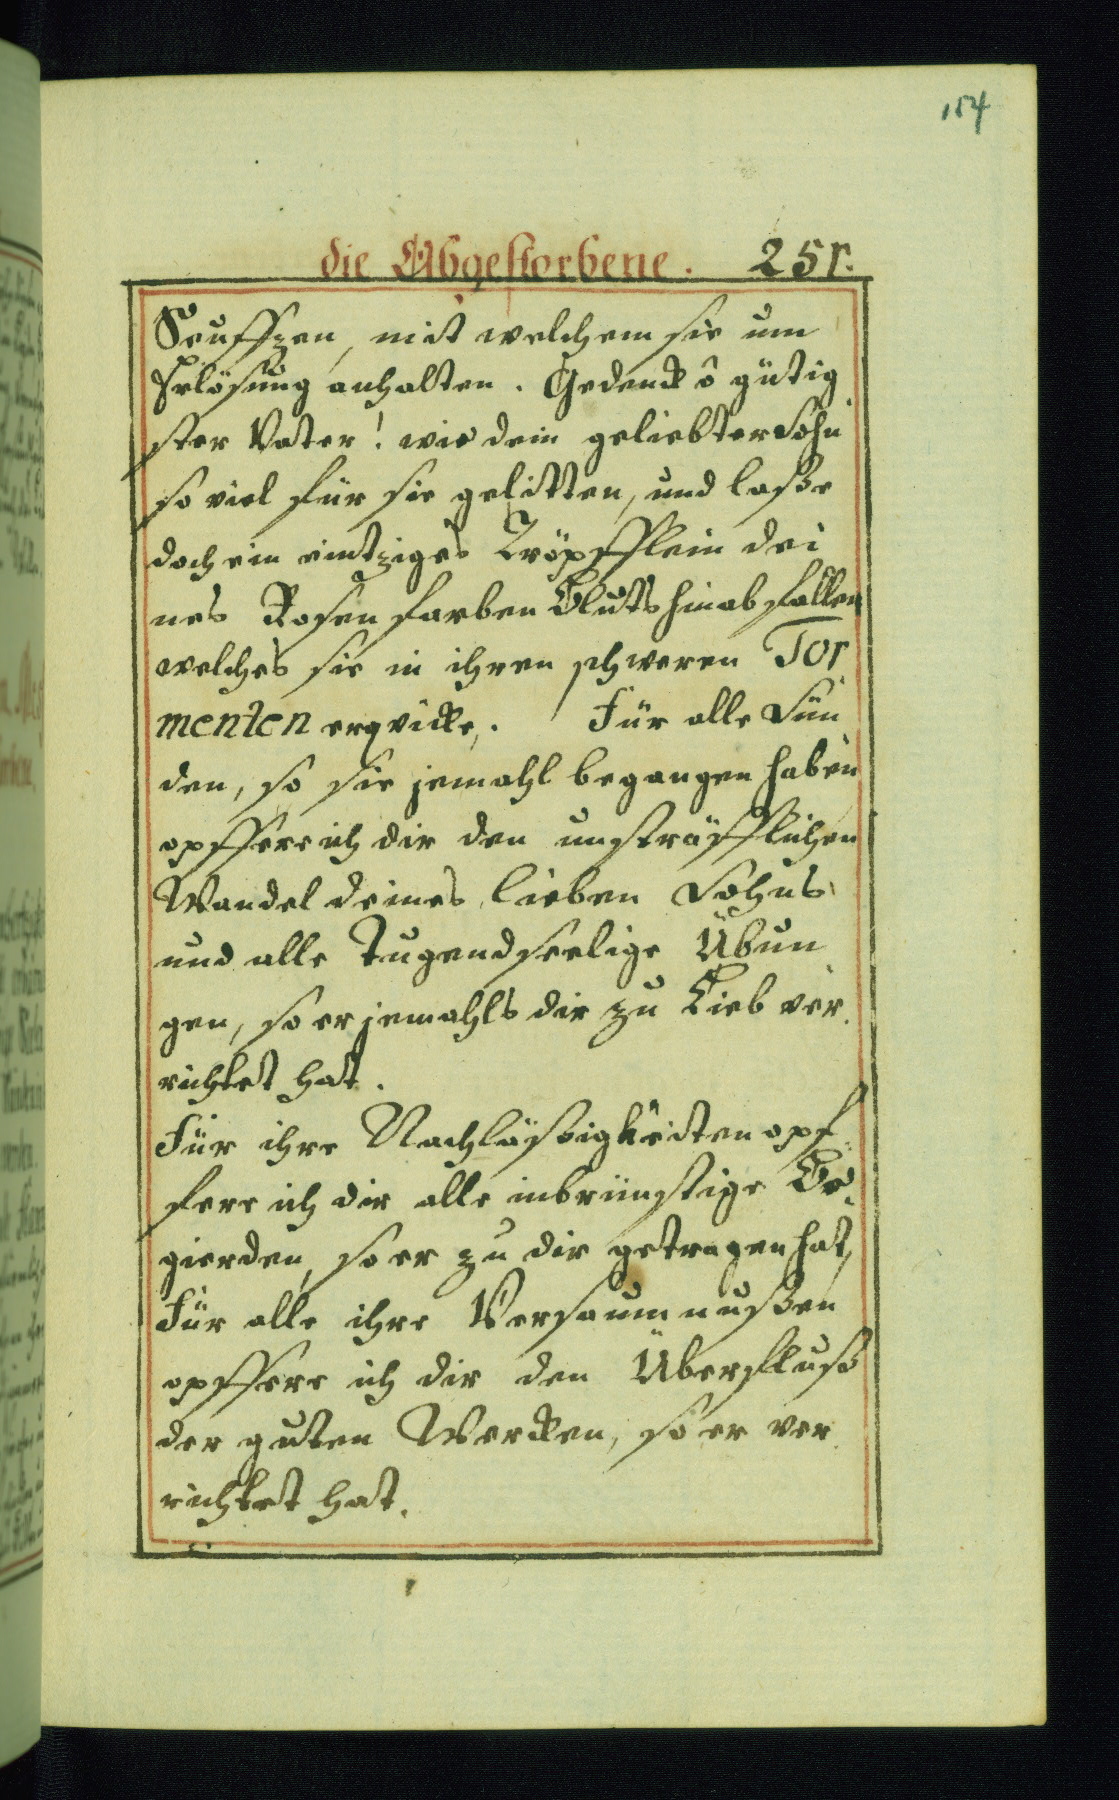 154
die Abgestorbene. 251.
Seuffzen, mit welchem sie um
Erlösung anhalten. Gedenck ô gütig
ster Vater! wie dein geliebter Sohn
so viel für sie gelitten, und lasse
doch ein eintziges Tröpfflein dei
nes Rosen farben Bluts hinab fallen
welches sie in ihren schweren Tor
menten erqvicke,. Für alle Sün
den, so sie jemahl begangen haben
opffere ich dir den unsträfflichen
Wandel deines lieben Sohns
und alle Tugendseelige Übun
gen, so er jemahls dir zu Lieb ver
richtet hat.
Für ihre Nachläßigkeiten opf
fere ich dir alle inbrünstige Be
gierden, so er zu dir getragen hat,
Für alle ihre Versaumnußen
opffere ich dir den Überfluß
der guten Wercken, so er ver
richtet hat.